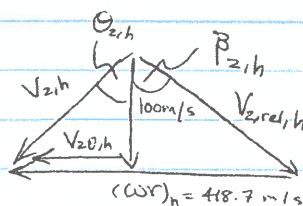 Θ₂,h β₂,h
V₂,h 100m/s V₂,rel,h
V₂θ,h
(ωr)ₕ = 418.7 m/s